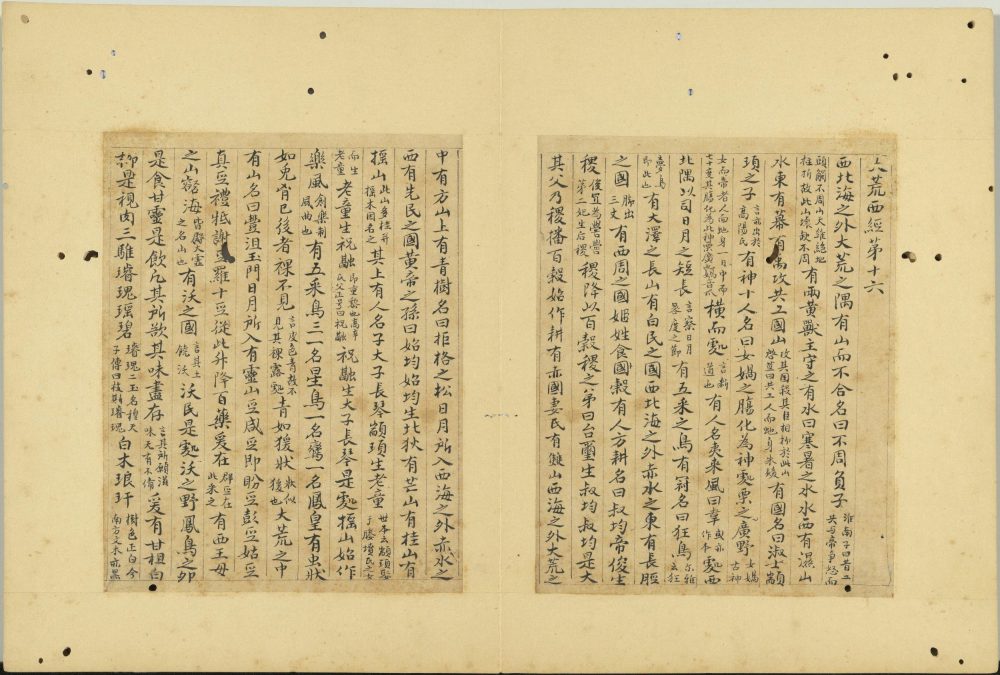 大荒西經第十六
西北海之外大荒之隅有山而不合名曰不周負子淮南子曰昔工共與帝爭怒而
頭觸不周山天維絕地柱折故此山壞缺不周有兩黃獸主守之有水曰寒暑之水水西有濕山
水東有幕有禹攻共工國山攻其國殺其臣相柳於此山啓筮曰共工人面蛇身朱髮有國名曰淑士顓
頊之子言亦出於高陽氏有神十人名曰女媧之腸化為神處栗之廣野女媧古神
女而帝者人面蛇身一日中而七十變其腸化為此神栗廣橫而處言斷道也有人名夷來風曰韋處西
北隅以司日月之短長言察日月晷度之節有五采之鳥有冠名曰狂鳥尔雅云狂
夢鳥即此也有大澤之長山有白民之國西北海之外赤水之東有長脛
之國脚出三丈有西周之國姬姓食國穀有人方耕名曰叔均帝俊生
稷俊宜為嚳嚳第二妃生后稷稷降以百穀稷之弟曰台璽生叔均叔均是大
其父乃稷播百穀始作耕有赤國妻民有雙山西海之外大荒之
中有方山上有青樹名曰拒格之松日月所入西海之外赤水之
西有先民之國黃帝之孫曰始均始均生北狄有芒山有桂山有
搖山此山多桂并搖木因名之其上有人名子大子長琴顓頊生老童世本云顓頊娶于滕墳氏之女
而生老童老童生祝融即重黎也高辛氏火正号曰祝融祝融生大子長琴是處搖山始作
樂風創樂制風曲也有五采鳥三一名皇鳥一名鸞一名鳳皇有虫狀
如兎胷已後者裸不見言皮色青故不見其裸露處青如猨狀狀似猨也大荒之中
有山名曰豐沮玉門日月所入有靈山巫咸巫即盼巫彭巫姑巫
真巫禮巫抵謝巫羅十巫從此升降百藥爰在群巫在此采之有西王母
之山壑海皆群大靈之名山也有沃之國言其土饒沃沃民是處沃之野鳳鳥之卵
是食甘靈是飲凡其所欲其味盡存言其所願滋味无有不備爰有甘柤白
柳是視肉三騅璿瑰瑶碧璿瑰二玉名穆天子傳曰枝斯璿瑰白木琅玕樹色正白今南方文木亦黑